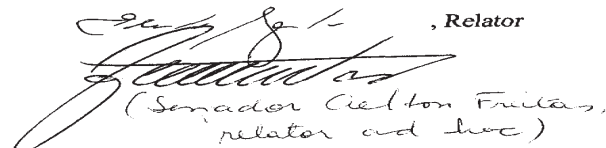 , Relator
(Senador Cielton Freitas,
relator ad hoc)